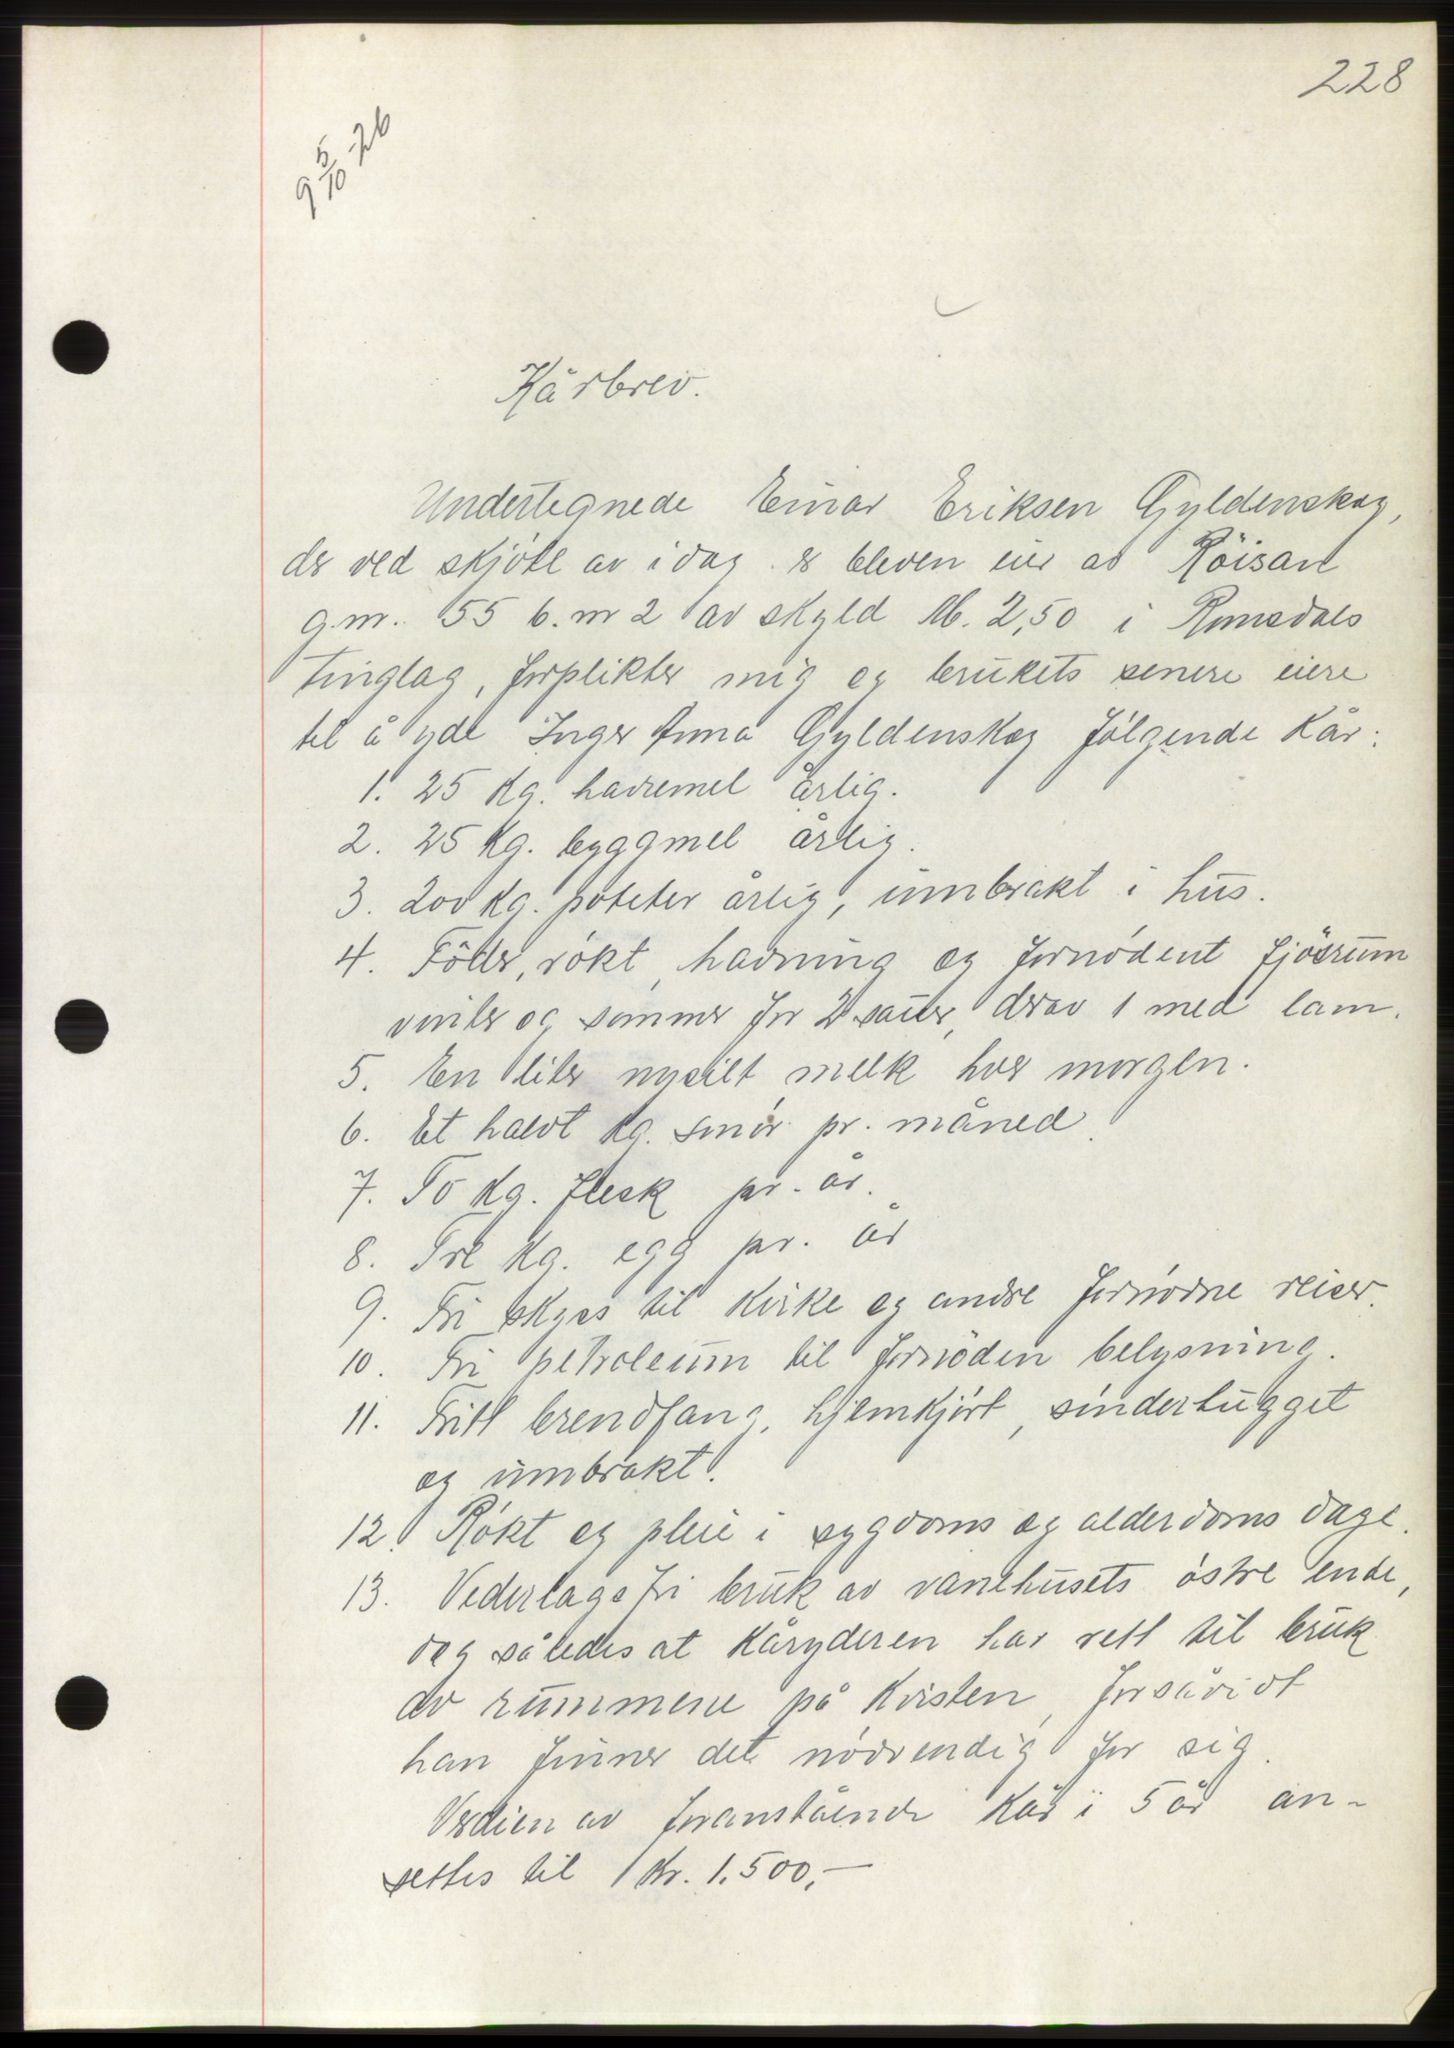 228
9 5/10-26
Kårbrev.
Undertegnede Einar Eriksen Gyldenskog,
der ved skjöte av idag er bleven eier av Röisan
g.nr. 55 b.nr 2 av skyld M. 2,50 i Romsdals
tinglag, forplikter mig og brukets senere eiere
til å yde Inger Anna Gyldenskog følgende kår:
1. 25 kg. havremel årlig.
2. 25 kg. byggmel årlig.
3. 200 kg. poteter årlig, innbrakt i hus.
4. Föder, røkt, havning og fornödent fjösrum
vinter og sommer for 2 sauer, derav 1 med lam.
5. En liter nysilt melk hver morgen.
6. Et halvt kg. smör pr. måned.
7. To kg. flesk pr. år.
8. Tre kg. egg pr. år
9. Fri skyss til kirke og andre fornödne reiser.
10. Fri petroleum til fornöden belysning.
11. Fritt brendfang, hjemkjört, sönderhugget
og innbrakt.
12. Røkt og pleie i sygdoms og alderdoms dage.
13. Vederlagsfri bruk av vånehusets östre ende,
dog således at kåryderen har rett til bruk
av rummene på kvisten, forsåvidt
han finner det nödvendig for sig.
Verdien av foranstående kår i 5 år an-
settes til kr. 1.500,-